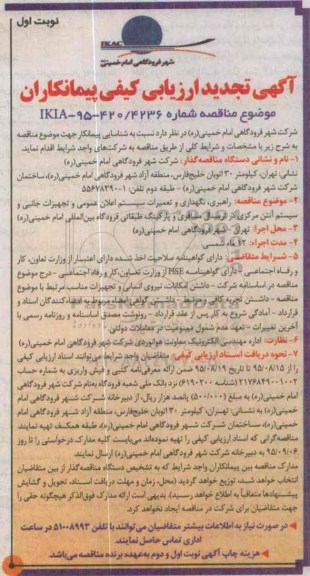 نوبت اول
IKAC
شهر فرودگاهی امام خمینی(ره)
آگهی تجدید ارزیابی کیفی پیمانکاران
موضوع مناقصه شماره IKIA-95-420/4236
شرکت شهر فرودگاهی امام خمینی(ره) در نظر دارد نسبت به شناسایی پیمانکار جهت موضوع مناقصه
به شرح زیر با مشخصات و شرایط کلی از طریق مناقصه به شرکت‌های واجد شرایط اقدام نماید.
۱- نام و نشانی دستگاه مناقصه‌گذار: شرکت شهر فرودگاهی امام خمینی(ره)
نشانی: تهران، کیلومتر ۳۰ اتوبان خلیج‌فارس، منطقه آزاد شهر فرودگاهی امام خمینی(ره)، ساختمان
شرکت شهر فرودگاهی امام خمینی(ره) - طبقه دوم تلفن: ۵۵۶۷۸۳۹۰-۱
۲- موضوع مناقصه: راهبری، نگهداری و تعمیرات سیستم اعلان عمومی و تجهیزات جانبی و
سیستم آنتن مرکزی در ترمینال مسافری و پارکینگ طبقاتی فرودگاه بین‌المللی امام خمینی(ره)
۳- محل اجرا: تهران - شهر فرودگاهی امام خمینی (ره)
۴- مدت اجراء: ۱۲ ماه شمسی
۵- شرایط متقاضی: دارای گواهینامه صلاحیت اخذ شده دارای اعتبار از وزارت تعاون، کار
و رفاه اجتماعی - دارای گواهینامه HSE از وزارت تعاون، کار و رفاه اجتماعی - درج موضوع
مناقصه در اساسنامه شرکت - داشتن امکانات، نیروی انسانی و تجهیزات مناسب مرتبط با موضوع
مناقصه - داشتن تجربه کافی و مرتبط - داشتن گواهی امضاء مربوط به امضاءکنندگان اسناد و
قرارداد - آمادگی شروع به کار پس از عقد قرارداد - رونوشت مصدق اساسنامه و روزنامه رسمی با
آخرین تغییرات - تعهد عدم شمول ممنوعیت در معاملات دولتی
۶- نظارت: اداره مهندسی الکترونیک معاونت هوانوردی شرکت شهر فرودگاهی امام خمینی(ره)
۷- نحوه دریافت اسناد ارزیابی کیفی: متقاضیان واجد شرایط می‌توانند اسناد ارزیابی کیفی
را از ۹۵/۰۸/۱۵ تا تاریخ ۹۵/۰۸/۱۹ ضمن ارائه معرفی‌نامه کتبی و فیش واریزی به شماره حساب
۲۱۷۶۸۴۹۰۰۱۰۰۲ (شناسه ۶۱۹۰۲۰۰) نزد بانک ملی شعبه فرودگاه به‌نام شرکت شهر فرودگاهی
امام خمینی(ره) به مبلغ (۵۰۰/۰۰۰) پانصد هزار ریال، از دبیرخانه شرکت شهر فرودگاهی امام
خمینی(ره) به نشانی: تهران، کیلومتر ۳۰ اتوبان خلیج‌فارس، منطقه آزاد شهر فرودگاهی امام
خمینی(ره)، ساختمان شرکت شهر فرودگاهی امام خمینی(ره)، طبقه همکف تهیه نمایند.
مناقصه‌گرانی که اسناد ارزیابی کیفی را تهیه نموده‌اند می‌بایست کلیه مدارک درخواستی را تا روز
۹۵/۰۹/۰۶ به دبیرخانه شرکت شهر فرودگاهی امام خمینی(ره) ارسال نمایند.
مدارک مناقصه بین پیمانکاران واجد شرایط که به تشخیص دستگاه مناقصه‌گذار از بین متقاضیان
انتخاب خواهد شد، توزیع خواهد گردید (محل، زمان و مهلت دریافت اسناد، تحویل و گشایش
پیشنهادها متعاقباً به اطلاع خواهد رسید). بدیهی است ارائه مدارک فوق‌الذکر هیچگونه حقی را
جهت متقاضیان برای شرکت در مناقصه ایجاد نخواهد کرد.
در صورت نیاز به اطلاعات بیشتر متقاضیان می‌توانند با تلفن ۵۱۰۰۸۹۹۳ در ساعت
اداری تماس حاصل نمایند.
هزینه چاپ آگهی نوبت اول و دوم به‌عهده برنده مناقصه می‌باشد.